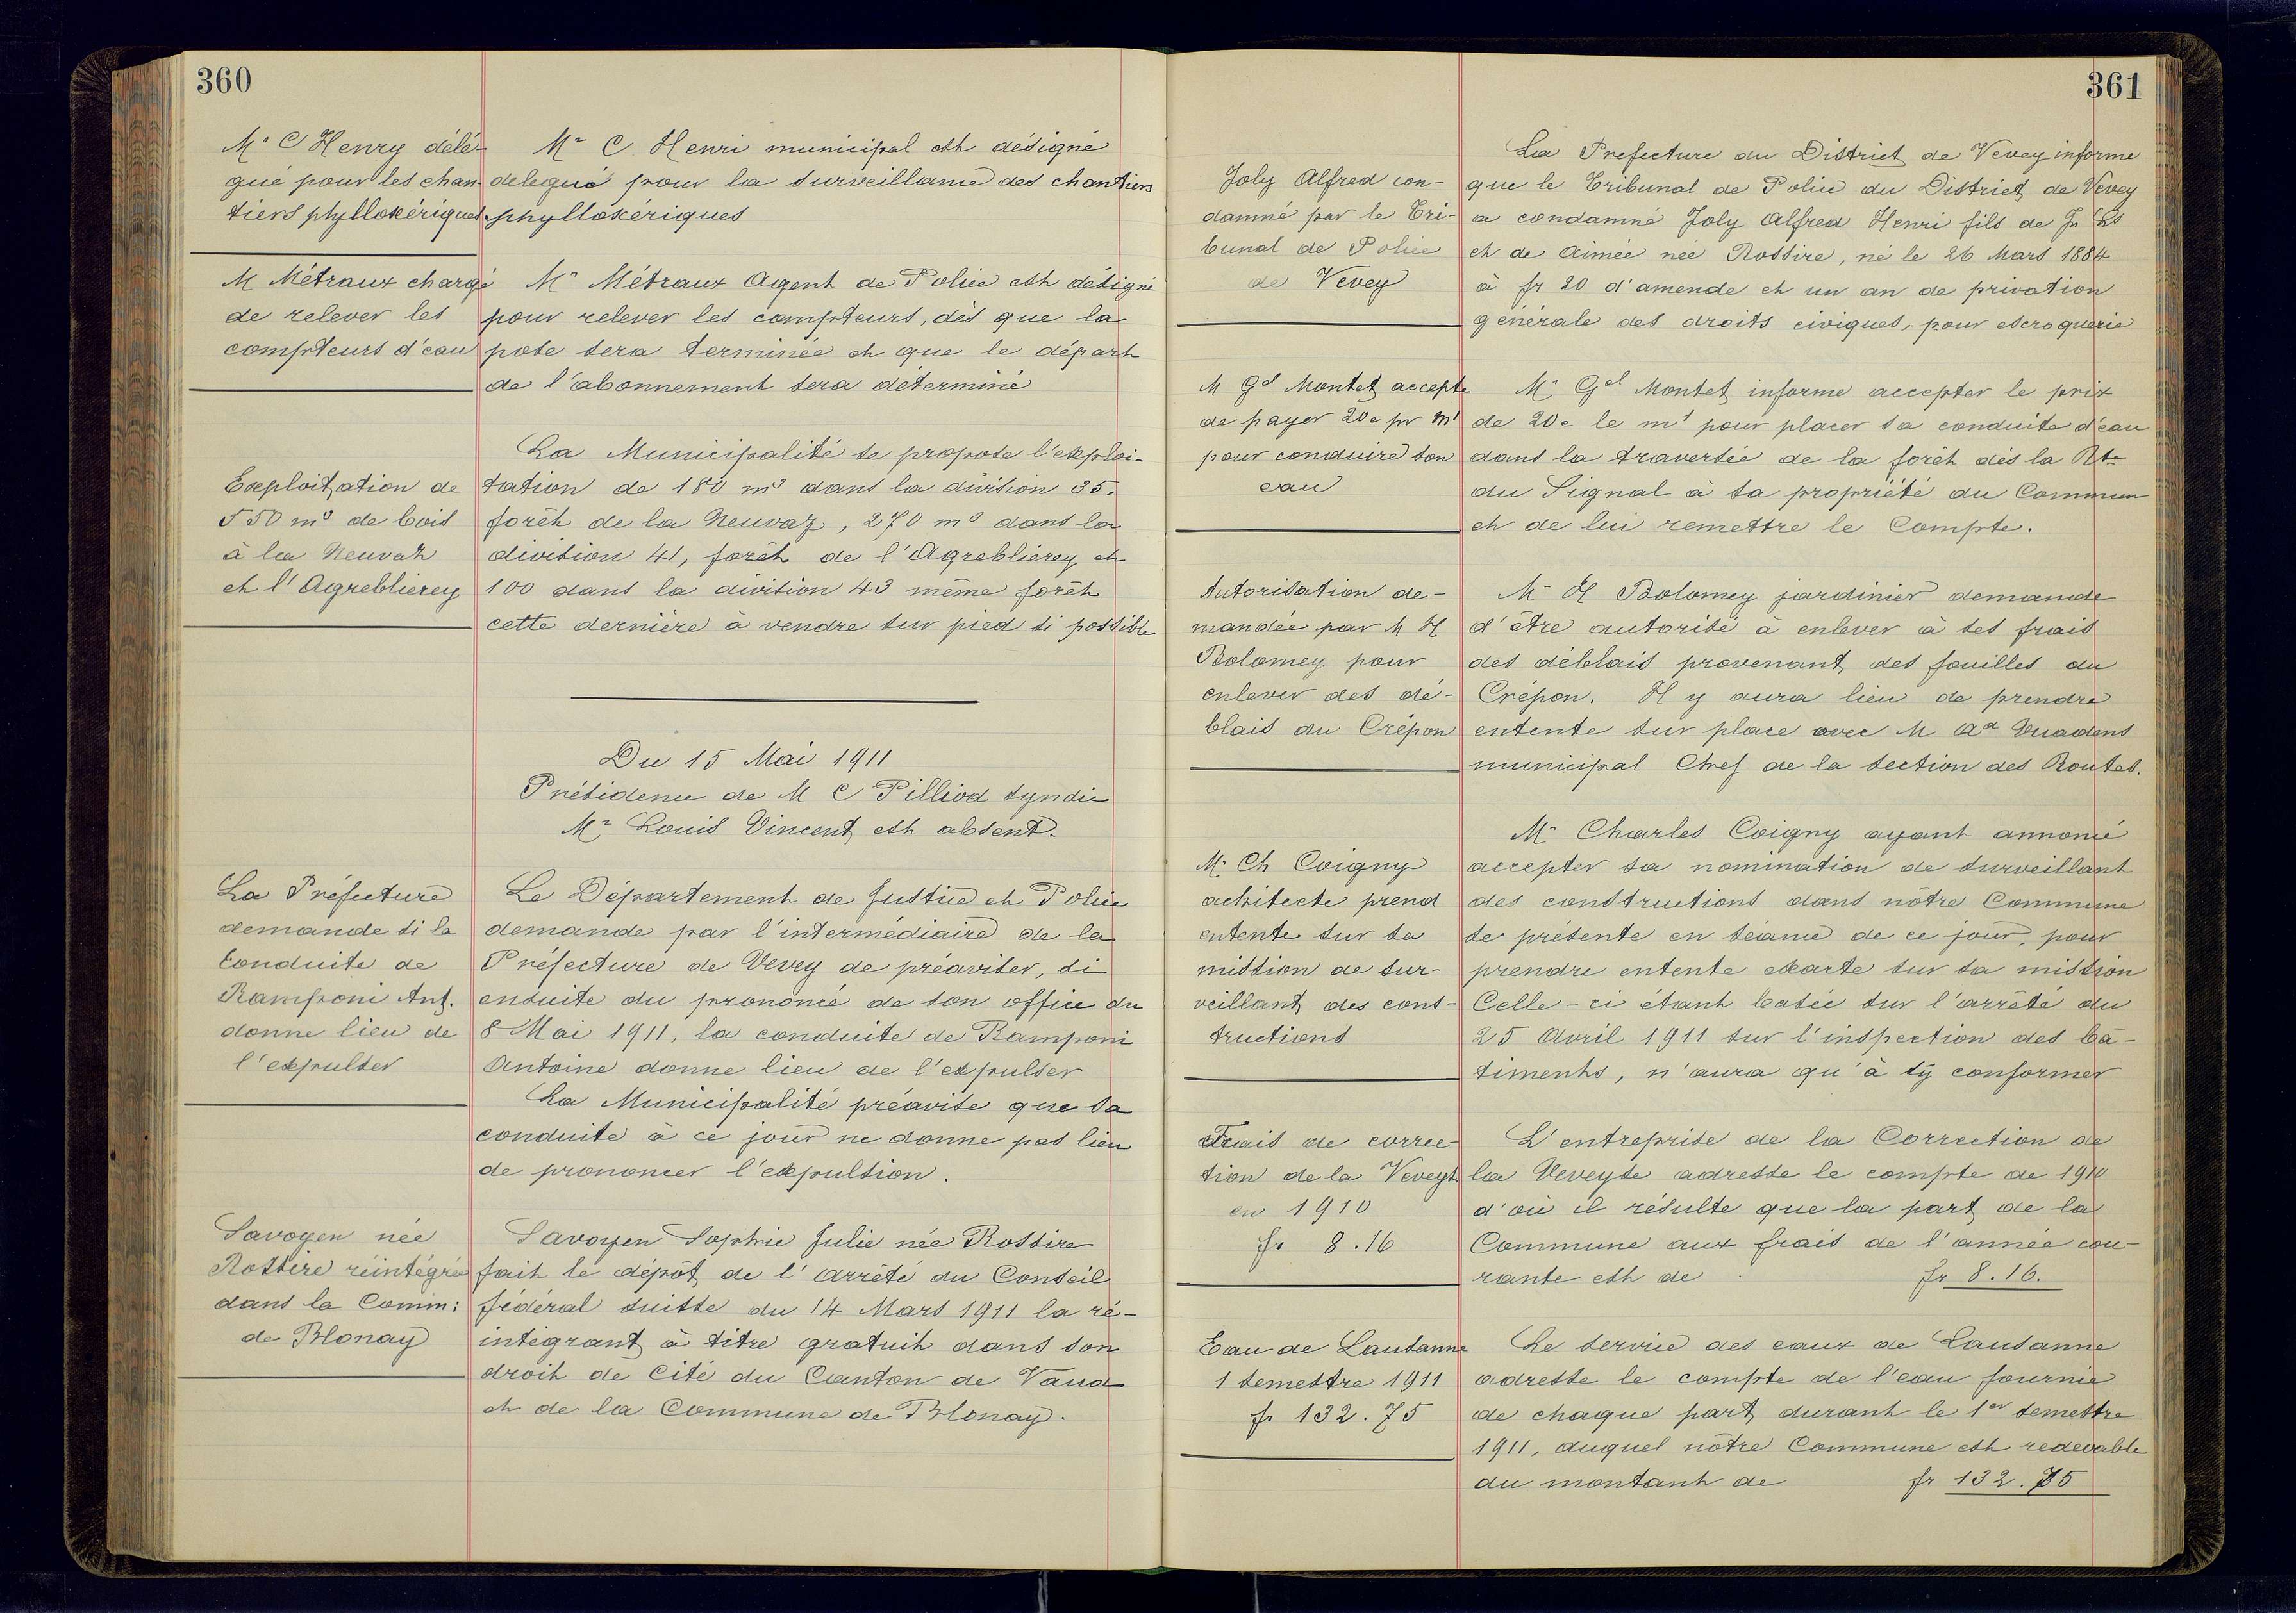 360
Mr C Henry délé-
gué pour les chan-
tiers phylloxériques
Mr C. Henri municipal est désigné
delegué pour la surveillance des chantiers
phylloxériques
M Métraux chargé
de relever les
compteurs d'eau
Mr Métraux Agent de Police est désigné
pour relever les compteurs, dès que la
pose sera terminée et que le départ
de l'abonnement sera déterminé
Exploitation de
550 m3 de bois
à la Neuvaz
et l'Agreblierey
La Municipalité se propose l'exploi-
tation de 180 m3 dans la division 35.
forêt de la Neuvaz, 270 m3 dans la
division 41, forêt de l'Agreblierey et
100 dans la division 43 même forêt
cette dernière à vendre sur pied si possible
Du 15 Mai 1911
Présidence de M C Pilliod syndic
Mr Louis Vincent est absent.
La Préfecture
demande si la
Conduite de
Ramponi Ant.
donne lieu de
l'expulser
Le Département de Justice et Police
demande par l'intermédiaire de la
Préfecture de Vevey de préaviser, si
ensuite du prononcé de son office du
8 Mai 1911, la conduite de Ramponi
Antoine donne lieu de l'expulser
La Municipalité préavise que sa
conduite à ce jour ne donne pas lieu
de prononcer l'expulsion.
Savoyen née
Rossire réintégrée
dans la Comm:
de Blonay
Savoyen Sophie Julie née Rossire
fait le dépôt de l'arrêté du Conseil
fédéral suisse du 14 Mars 1911 la ré-
intégrant à titre gratuit dans son
droit de Cité du Canton de Vaud
et de la Commune de Blonay.
361
Joly Alfred con-
damné par le Tri-
bunal de Police
de Vevey
La Prefecture du District de Vevey informe
que le Tribunal de Police du District de Vevey
a condamné Joly Alfred Henri fils de Jn Ls
et de Aimée née Rossire, né le 26 Mars 1884
à fr 20 d'amende et un an de privation
générale des droits civiques, pour escroquerie
M Gel Montet accepte
de payer 20c pr m1
pour conduire son
eau
Mr Gel Montet informe accepter le prix
de 20c le m1 pour placer sa conduite d'eau
dans la traversée de la forêt dès la Rte
du Signal à sa propriété du Commun
et de lui remettre le Compte.
Autorisation de-
mandée par M H
Bolomey pour
enlever des dé-
blais du Crépon
Mr H Bolomey jardinier demande
d'être autorisé à enlever à ses frais
des déblais provenant des fouilles du
Crépon. Il y aura lieu de prendre
entente sur place avec M Ad Cuadens
municipal Chef de la section des Routes.
Mr Ch Coigny
achitecte prend
entente sur sa
mission de sur-
veillant des cons-
tructions
Mr Charles Coigny ayant annoncé
accepter sa nomination de surveillant
des constructions dans nôtre Commune
se présente en séance de ce jour, pour
prendre entente exacte sur sa mission
Celle-ci étant basée sur l'arrêté du
25 Avril 1911 sur l'inspection des bâ-
timents, n'aura qu'à s'y conformer
Frais de correc-
tion de la Veveyse
en 1910
fr 8.16
L'entreprise de la Correction de
la Veveyse adresse le compte de 1910
d'où il résulte que la part de la
Commune aux frais de l'année cou-
rante est de fr 8.16.
Eau de Lausanne
1 semestre 1911
fr 132.75
Le service des eaux de Lausanne
adresse le compte de l'eau fournie
de chaque part durant le 1er semestre
1911, duquel nôtre Commune est redevable
du montant de fr 132.75